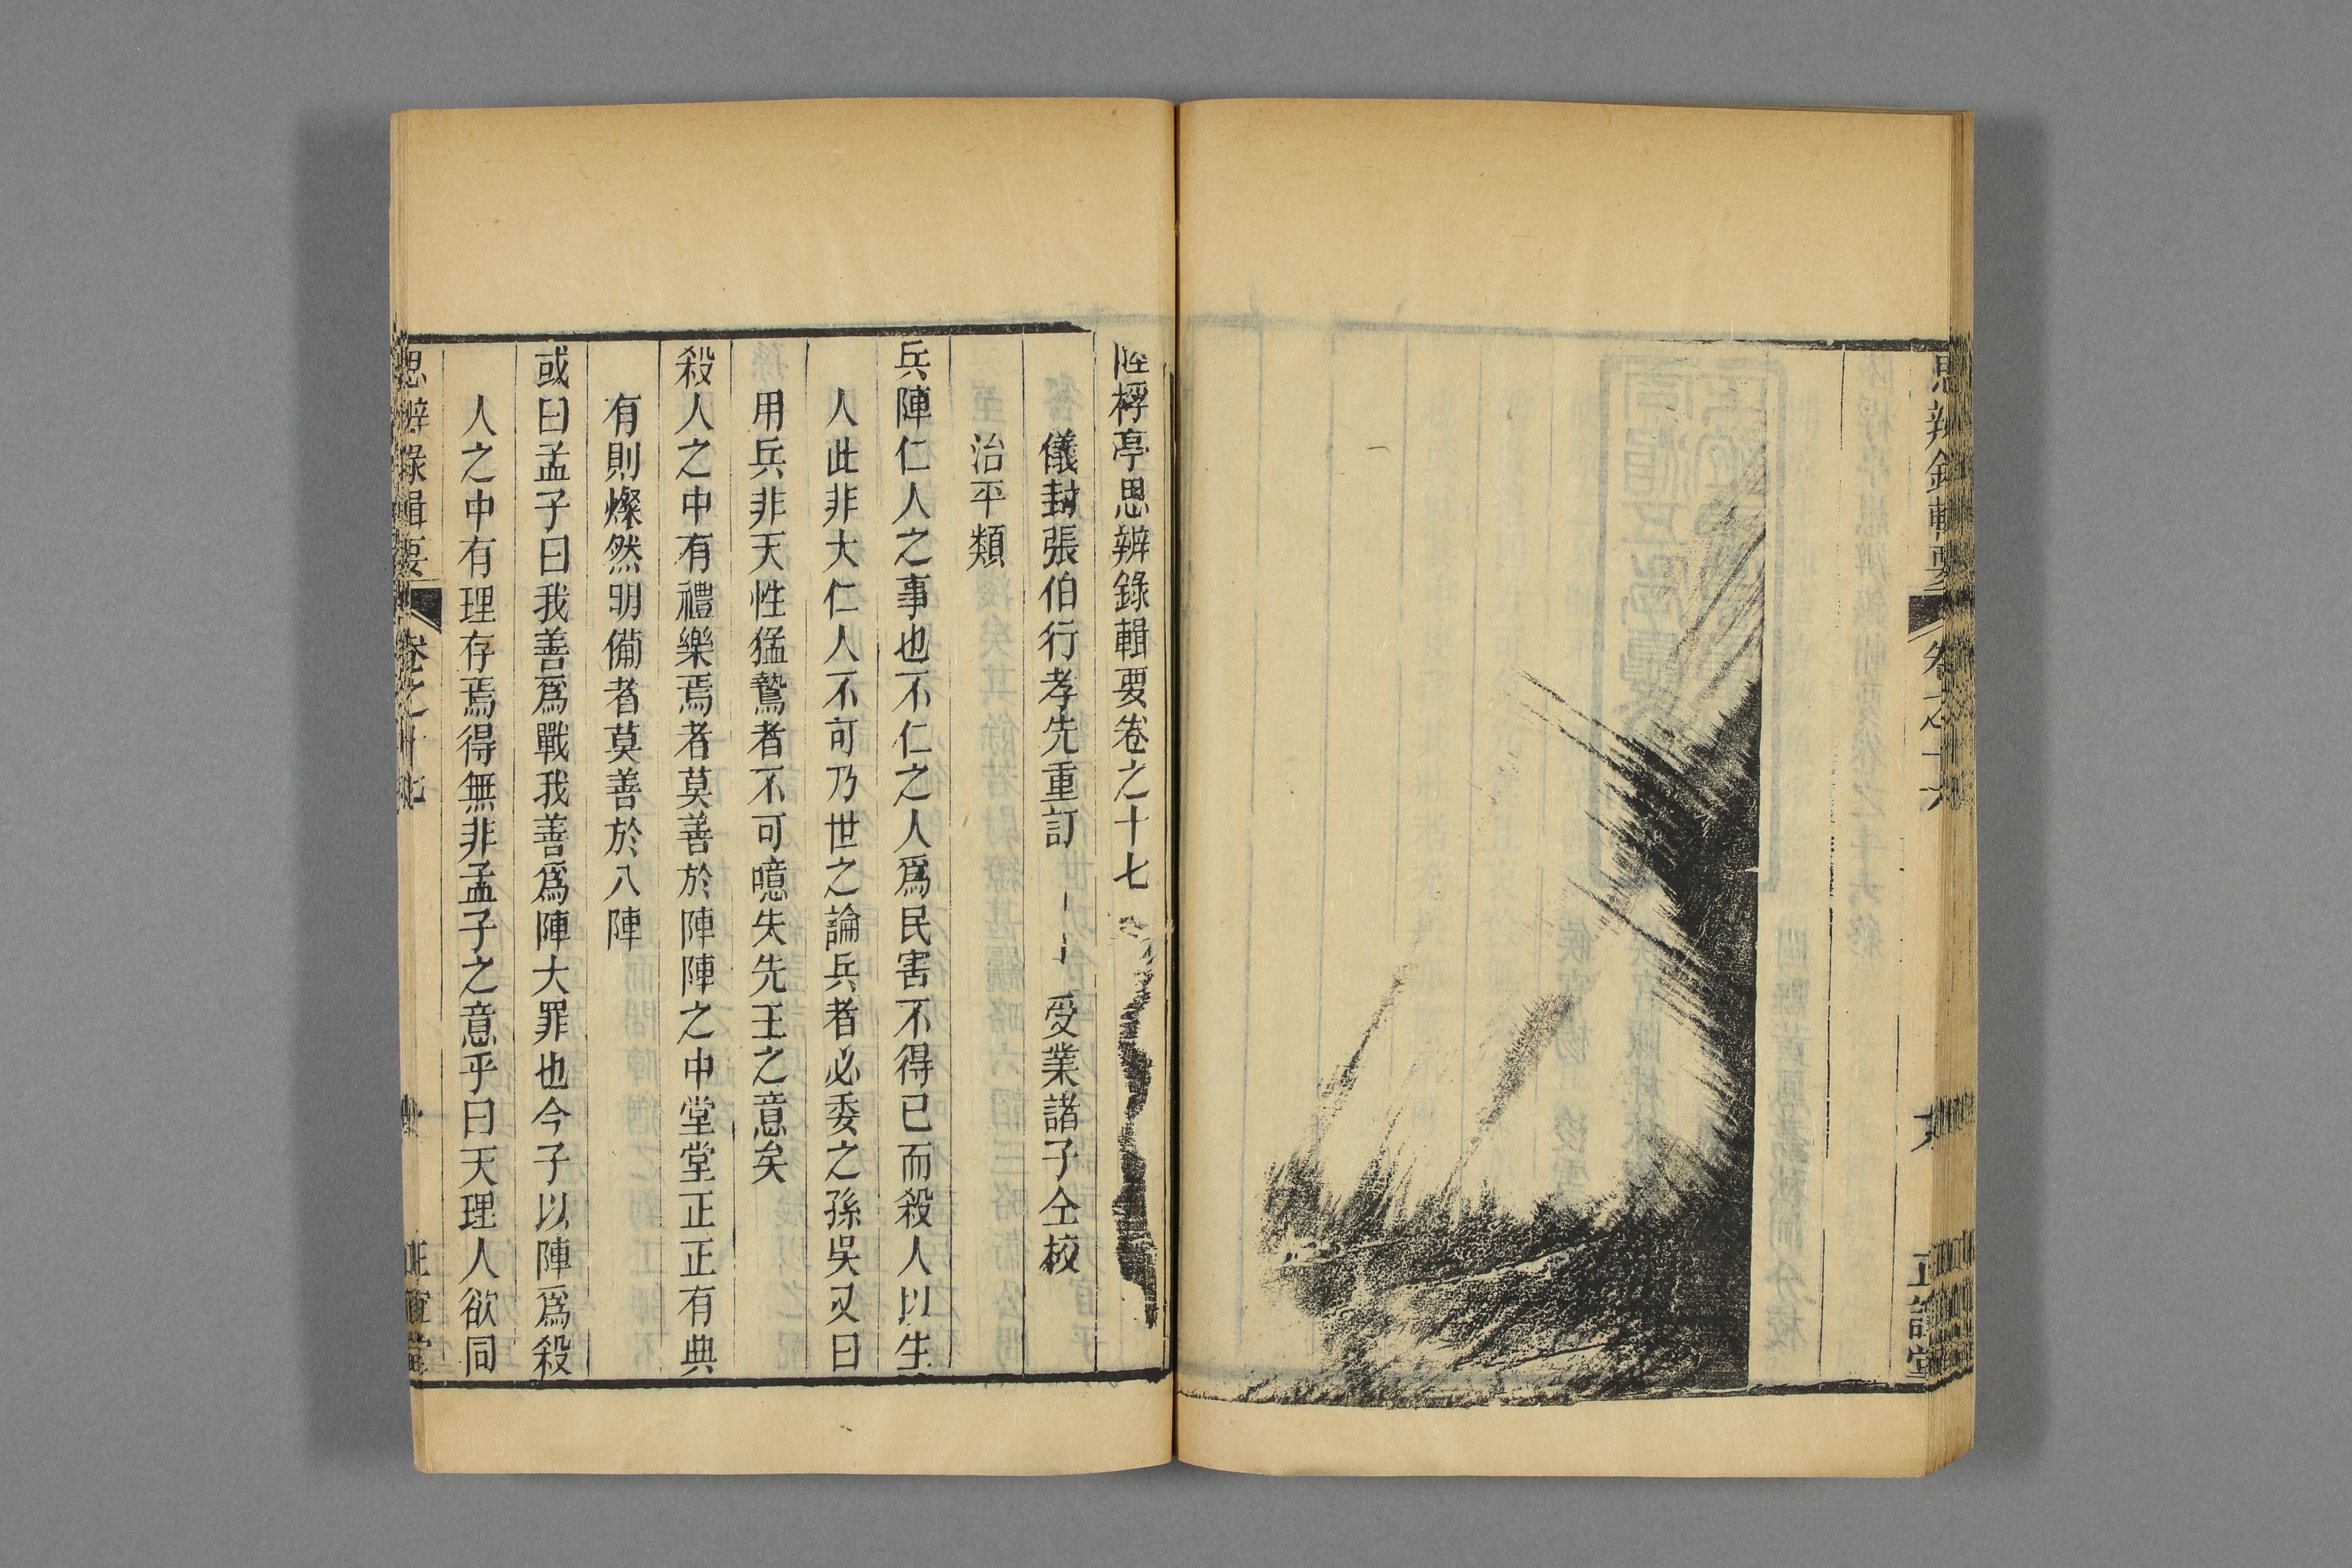 思辨錄輯要 卷之十六 正誼堂
陸桴亭思辨錄輯要卷之十七
儀封張伯行孝先重訂 受業諸子仝校
治平類
兵陣仁人之事也不仁之人爲民害不得已而殺人以生
人此非大仁人不可乃世之論兵者必委之孫吳又曰
用兵非天性猛鷙者不可噫失先王之意矣
殺人之中有禮樂焉者莫善於陣陣之中堂堂正正有典
有則燦然明備者莫善於八陣
或曰孟子曰我善爲戰我善爲陣大罪也今子以陣爲殺
人之中有理存焉得無非孟子之意乎曰天理人欲同
思辨錄輯要 卷之十七 正誼堂